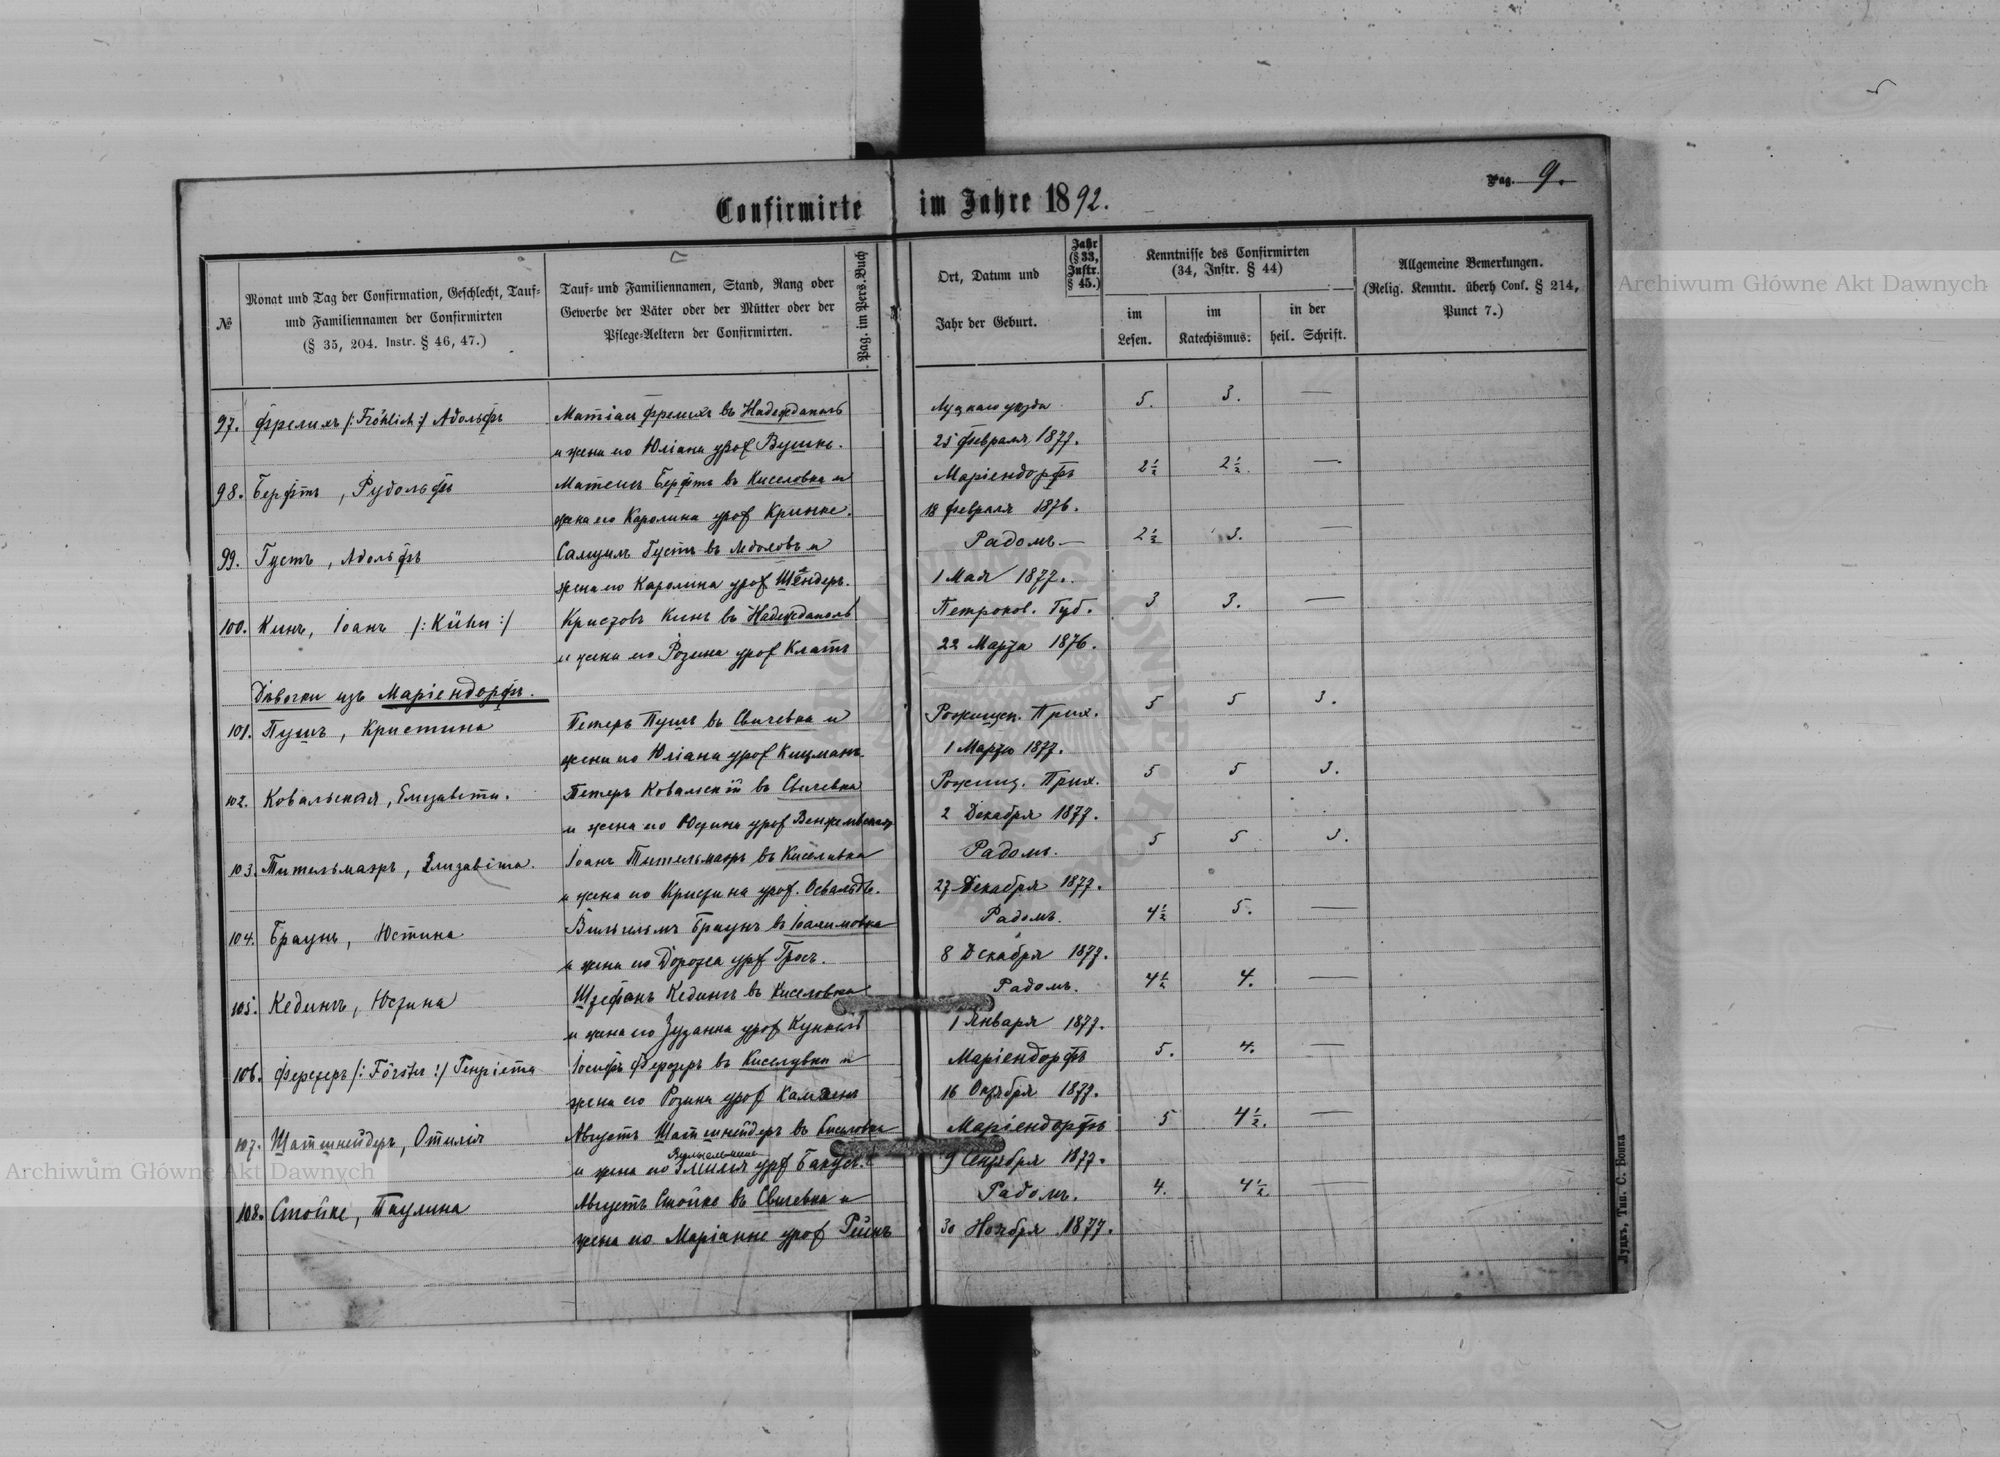 Pag. 9.
Confirmirte im Jahre 1892.
№
Monat und Tag der Confirmation, Geschlecht, Tauf-
und Familiennamen der Confirmirten
(§ 35, 204. Instr. § 46, 47.)
Tauf- und Familiennamen, Stand, Rang oder
Gewerbe der Väter oder der Mütter oder der
Pflege-Aeltern der Confirmirten.
Pag. im Pers.Buch
Ort, Datum und
Jahr der Geburt.
Jahr
(§ 33,
Instr.
§ 45.)
Kenntnisse des Confirmirten
(34, Instr. § 44)
im
Lesen.
im
Katechismus:
in der
heil. Schrift.
Allgemeine Bemerkungen.
(Relig. Kenntn. überh Conf. § 214,
Punct 7.)
97. Фрелихъ /: Fröhlich :/ Адольфъ Матіас Фрелихъ въ Надеждаполь Луцкаго уѣзда 5. 3. —
и жена его Юліана урож Вушке. 25 Февраля 1877.
98. Берфтъ, Рудольфъ Матеиъ Берфтъ въ Киселовка и Маріендорфъ 2½ 2½. —
жена его Каролина урож Кринке. 18 Февраля 1876.
99. Густъ, Адольфъ Самуилъ Густъ въ и Радомъ — 2½ 3. —
жена его Каролина урож Шендеръ. 1 Мая 1877.
100. Кинъ, Іоанъ /: Kühn :/ Кристовъ Кинъ въ Надеждаполь Петроков. Губ. 3 3. —
и жена его Розина урож Клатъ 22 Марта 1876.
Дѣвочки изъ Маріендорфъ.
101. Пушъ, Кристина Петеръ Пушъ въ Свичевка и Рожищен. Прих. 5 5 3.
жена его Юліана урож Кицманъ 1 Марта 1877.
102. Ковальская, Елизавета. Петеръ Ковалскій въ Свичевка Рожищ. Прих. 5 5 3.
и жена его Юстина урож 2 Декабря 1877.
103. Тительмаеръ, Элизавета. Іоанъ Тительмаеръ въ Киселивка Радомъ. 5 5 3.
и жена его Кристина урож. Освальдъ. 27 Декабря 1877.
104. Браунъ, Юстина Вильгельмъ Браунъ въ Іоакимовка Радомъ. 4½ 5. —
и жена его Доротеа урож Гросъ. 8 Декабря 1877.
105. Кедингъ, Юстина Штефанъ Кедингъ въ Киселовка Радомъ. 4½ 4. —
и жена его Зузанна урож Кункель 1 Января 1877.
106. Ферстеръ /: Förster :/ Генріета Іосифъ Ферстеръ въ Киселувка и Маріендорфъ 5. 4. —
жена его Розина урож 16 Октября 1877.
107. Шатшнейдеръ, Отилія Августъ Шатшнейдеръ въ Киселовка Маріендорфъ 5 4½. —
Вильгельмине
и жена его Эмилія урож 9 Сентября 1877.
108. Стойке, Паулина Августъ Стойке въ Свичевка и Радомъ. 4. 4½ —
жена его Маріанне урож Рейнъ 30 Ноября 1877.
Луцкъ, Тип. С. Бонка
Archiwum Główne Akt Dawnych
Archiwum Główne Akt Dawnych